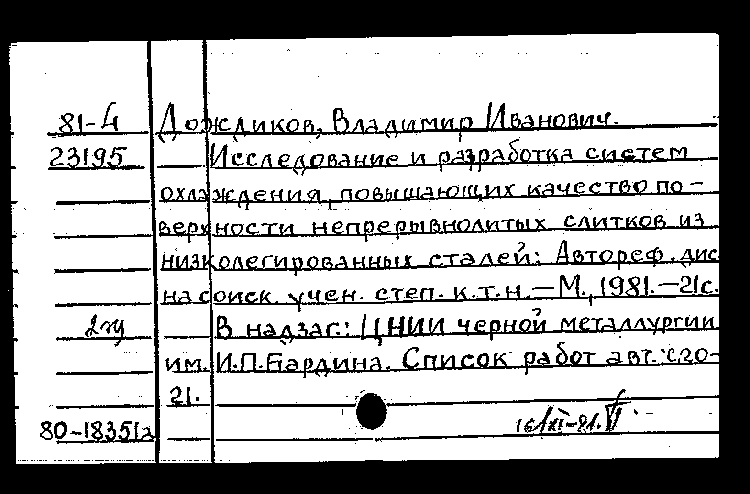 81-4 Дождиков, Владимир Иванович.
23195 Исследование и разработка систем
охлаждения, повышающих качество по-
верхности непрерывнолитых слитков из
низколегированных сталей: Автореф. дис.
на соиск. учен. степ. к.т.н. — М., 1981. — 21с.
В надзаг.: ЦНИИ черной металлургии
им. И.П.Бардина. Список работ авт. с.20-
21.
80-18351а